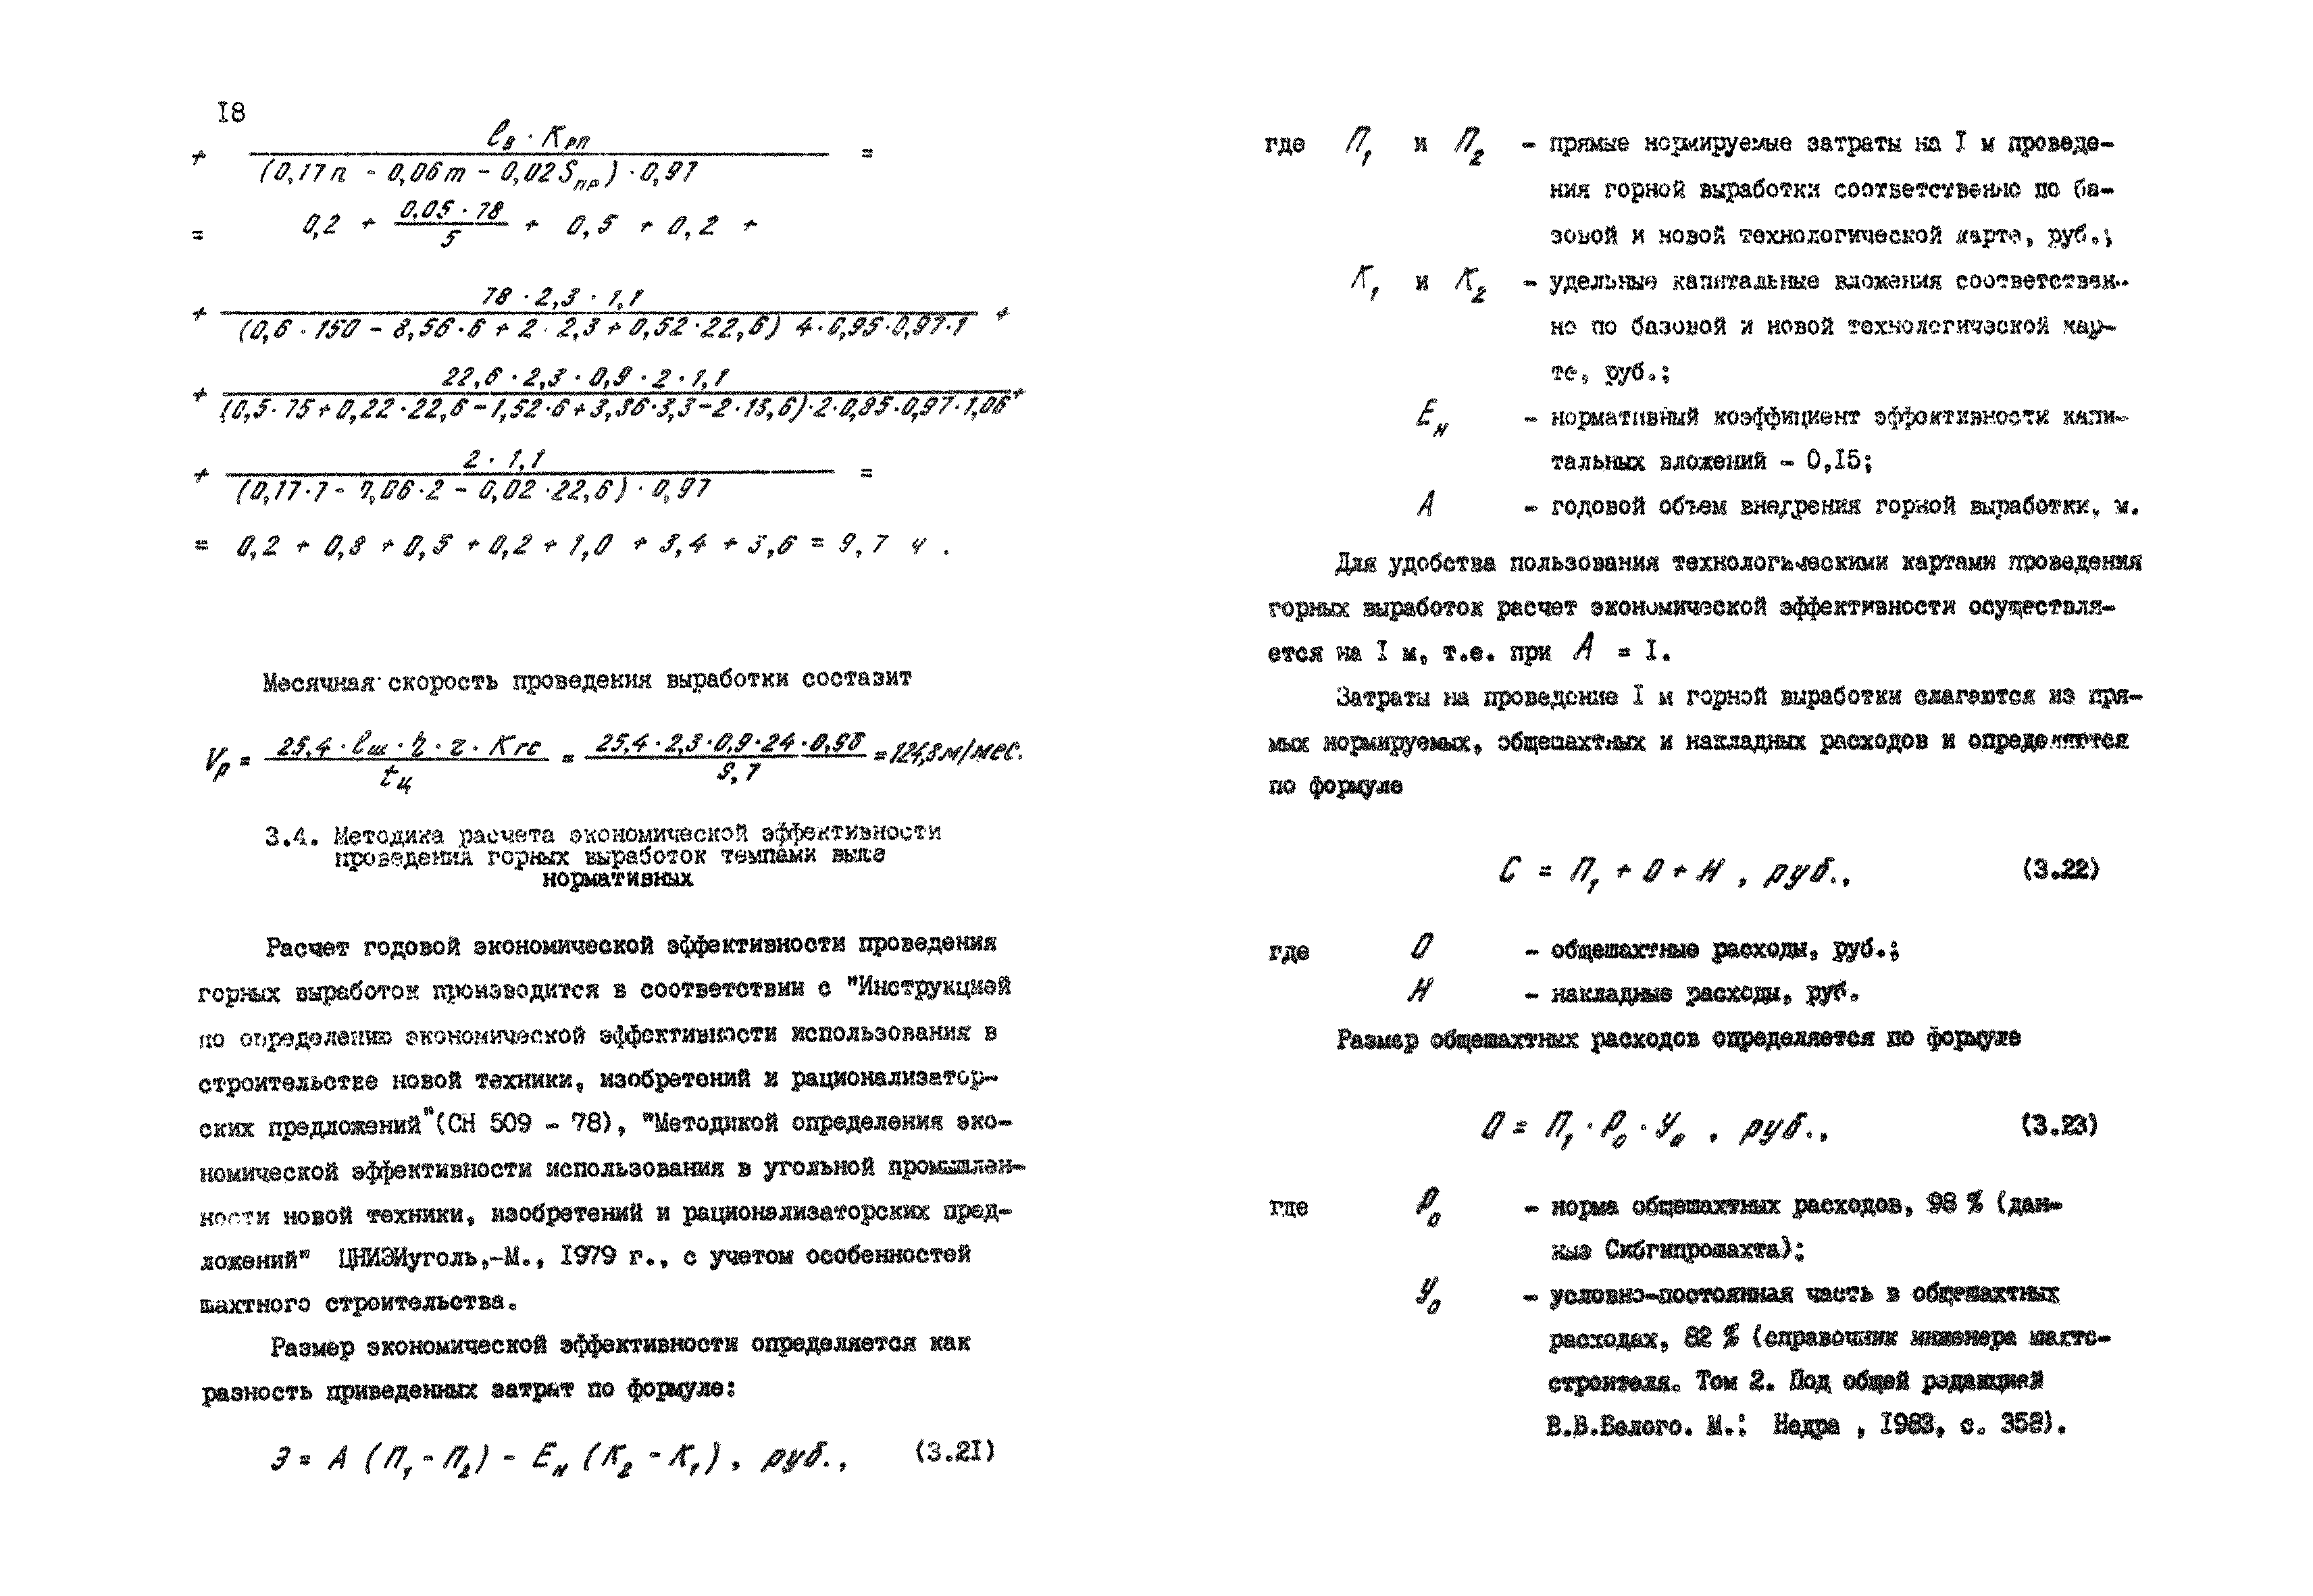 18
+ l_в · К_РП / (0,17n - 0,06m - 0,02S_ПР) · 0,97 =
= 0,2 + 0,05 · 78 / 5 + 0,5 + 0,2 +
+ 78 · 2,3 · 1,1 / (0,6 · 150 - 8,56·6 + 2 · 2,3 + 0,52·22,6) 4·0,95·0,97·1 +
+ 22,6 · 2,3 · 0,9 · 2 · 1,1 / (0,5·75+0,22·22,6-1,52·6+3,36·3,3-2·13,6)·2·0,85·0,97·1,06 +
+ 2 · 1,1 / (0,17·7 - 0,06·2 - 0,02·22,6) · 0,97 =
= 0,2 + 0,8 + 0,5 + 0,2 + 1,0 + 3,4 + 3,6 = 9,7 ч.
Месячная скорость проведения выработки составит
V_р = 25,4 · l_ш · η · г · К_гс / t_ц = 25,4 · 2,3·0,9·24·0,96 / 9,7 = 124,8 м/мес.
3.4. Методика расчета экономической эффективности
проведения горных выработок темпами выше
нормативных
Расчет годовой экономической эффективности проведения
горных выработок производится в соответствии с "Инструкцией
по определению экономической эффективности использования в
строительстве новой техники, изобретений и рационализатор-
ских предложений"(СН 509 - 78), "Методикой определения эко-
номической эффективности использования в угольной промышлен-
ности новой техники, изобретений и рационализаторских пред-
ложений" ЦНИЭИуголь,-М., 1979 г., с учетом особенностей
шахтного строительства.
Размер экономической эффективности определяется как
разность приведенных затрат по формуле:
Э = А (П₁ - П₂) - Е_н (К₂ - К₁), руб., (3.21)
где П₁ и П₂ - прямые нормируемые затраты на 1 м проведе-
ния горной выработки соответственно по ба-
зовой и новой технологической карте, руб.;
К₁ и К₂ - удельные капитальные вложения соответствен-
но по базовой и новой технологической кар-
те, руб.;
Е_н - нормативный коэффициент эффективности капи-
тальных вложений - 0,15;
А - годовой объем внедрения горной выработки, м.
Для удобства пользования технологическими картами проведения
горных выработок расчет экономической эффективности осуществля-
ется на 1 м, т.е. при А = 1.
Затраты на проведение 1 м горной выработки слагаются из пря-
мых нормируемых, общешахтных и накладных расходов и определяется
по формуле
С = П₁ + О + Н, руб., (3.22)
где О - общешахтные расходы, руб.;
Н - накладные расходы, руб.
Размер общешахтных расходов определяется по формуле
О = П₁ · Р₀ · У₀, руб., (3.23)
где Р₀ - норма общешахтных расходов, 98 % (дан-
ные Сибгипрошахта);
У₀ - условно-постоянная часть в общешахтных
расходах, 82 % (справочник инженера шахто-
строителя. Том 2. Под общей редакцией
В.В.Белого. М.: Недра, 1983, с. 358).